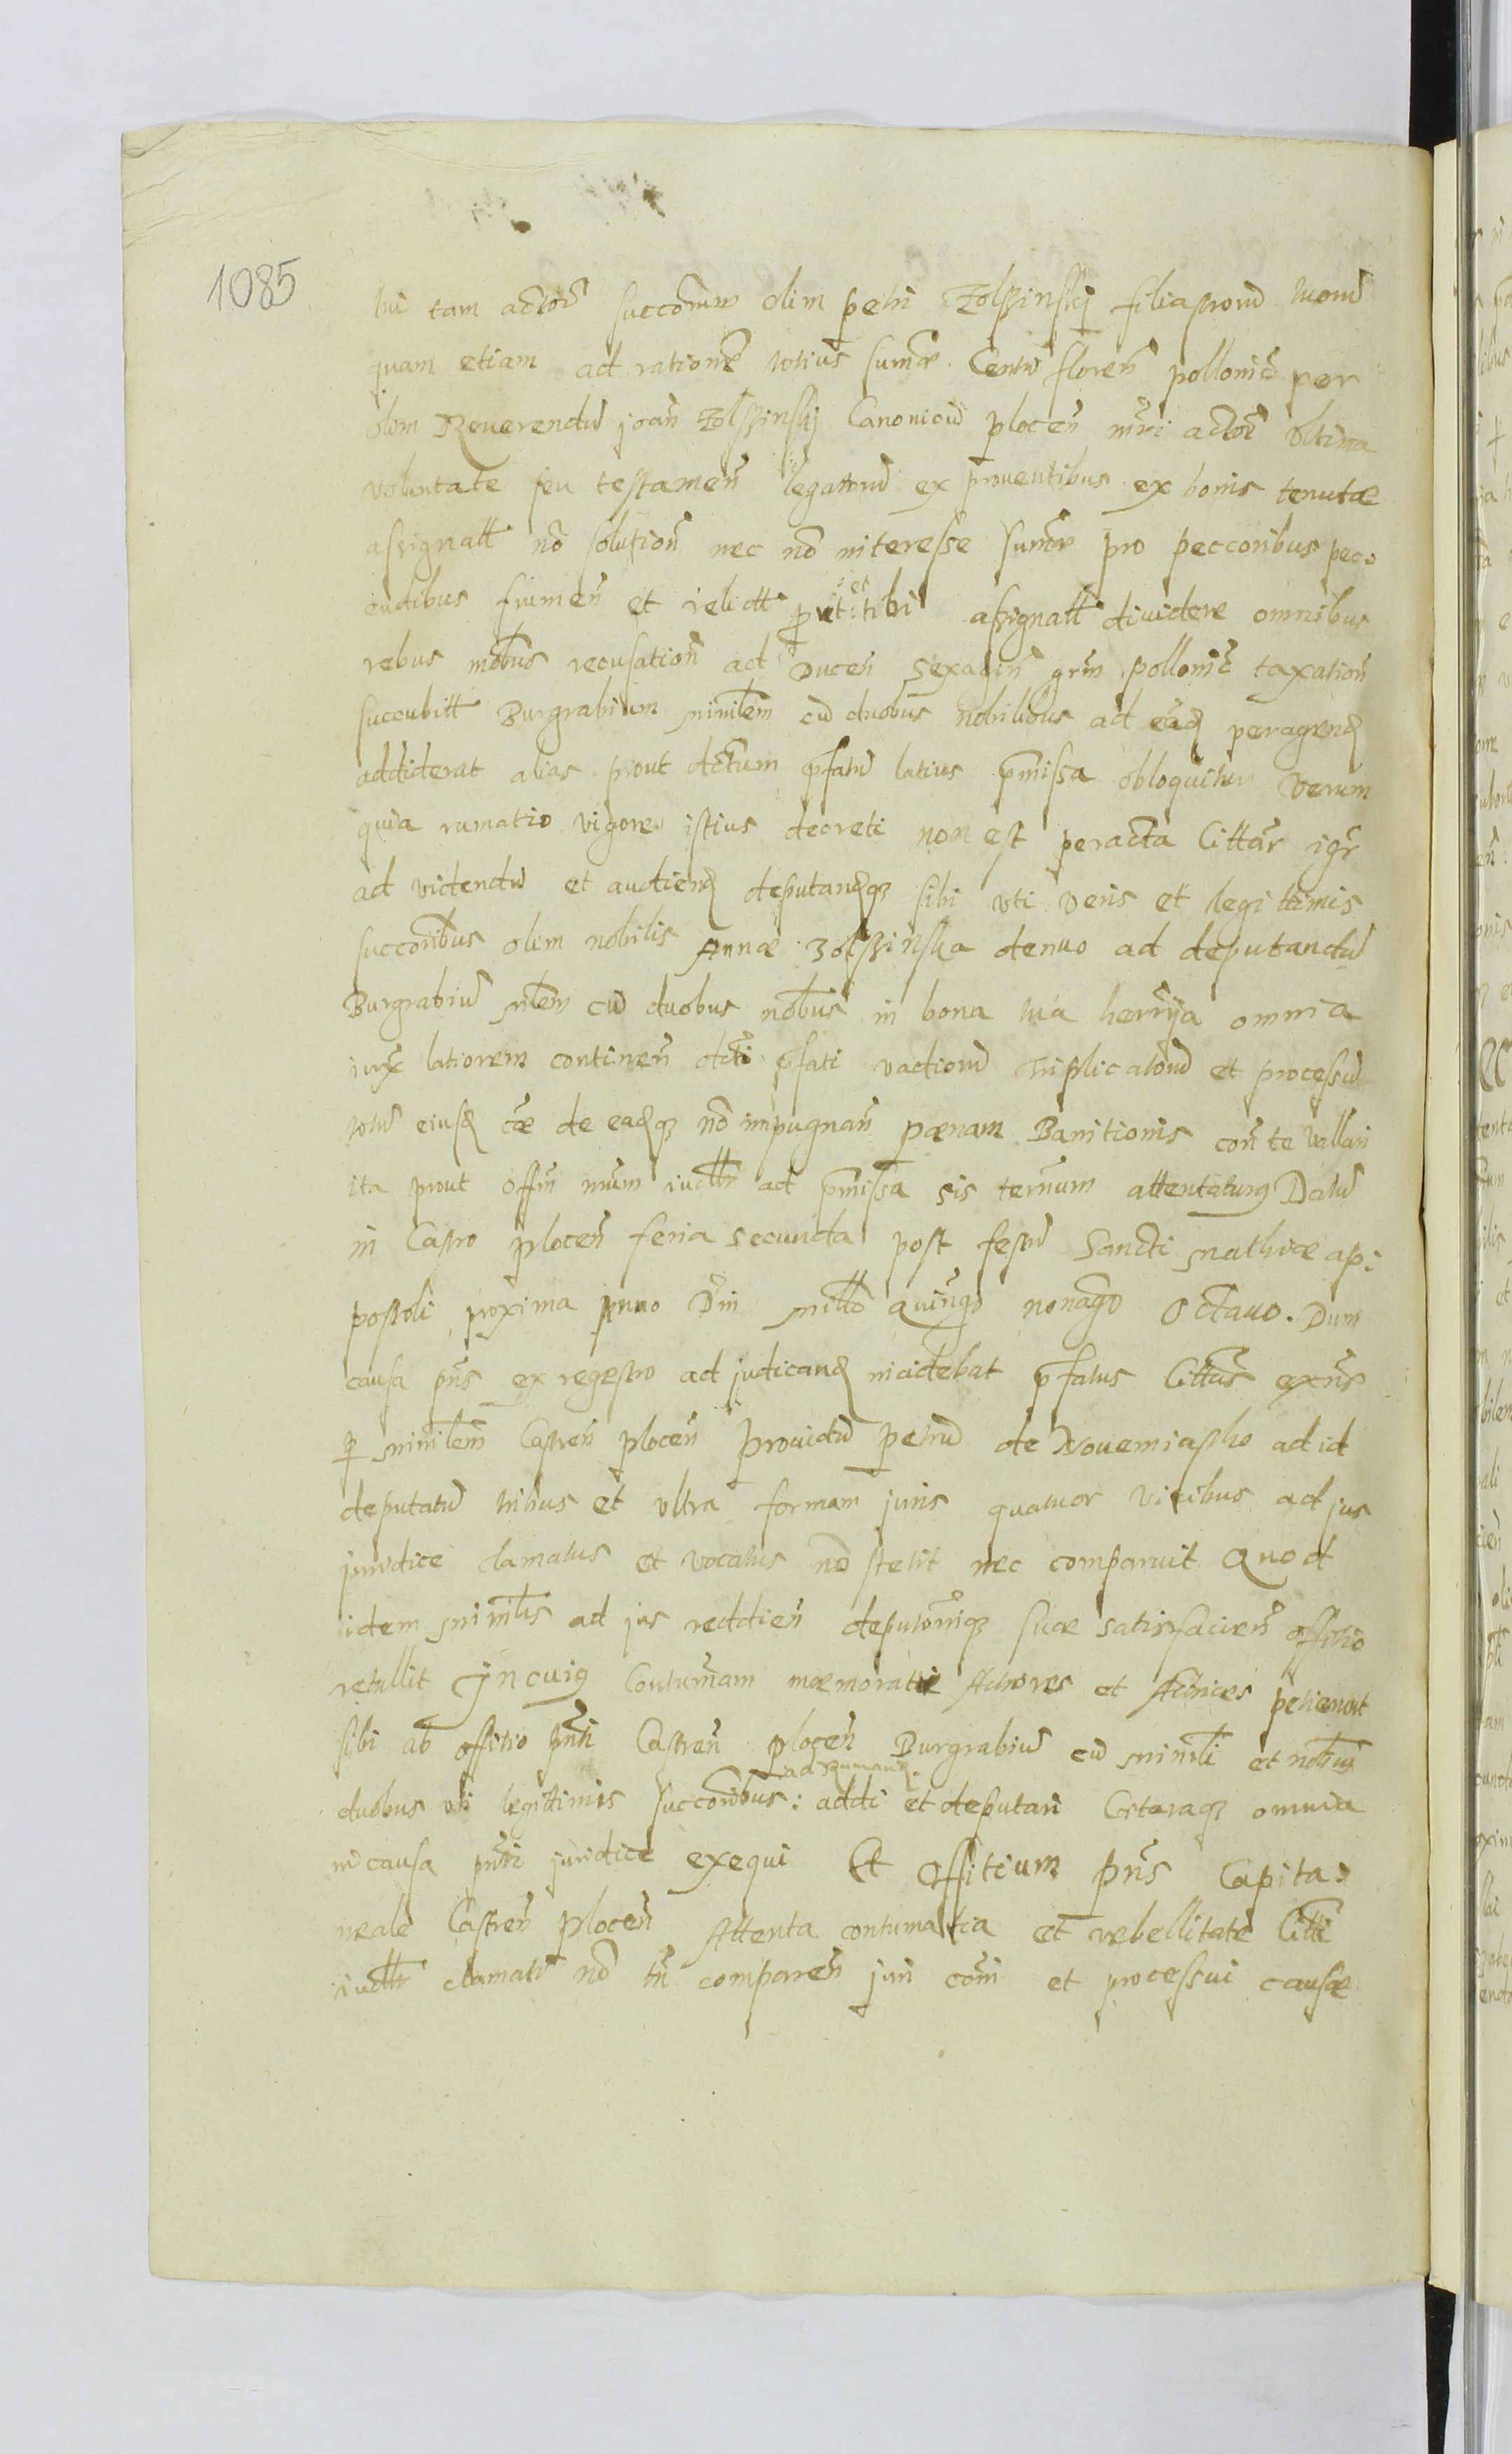 1085
tui tam actor̃ succorum olim petri Zolssinskj filiastrorũ tuorũ
quam etiam ad rationẽ totius sum̃æ Centũ floreñ pollonic̃ per
olim Reuerendũ joañ Zolssinskj Canonicũ ploceñ actor̃ vltima
voluntate seu testameñ legatorũ ex prouentibus ex bonis tenutæ
assignatt nõ solutioñ nec nõ interesse sum̃æ pro peccoribus pec⸗
cudibus frumeñ et relictt et tibi assignatt diuidere omnibus
rebus mõbus recusatioñ ad Duceñ Sexagiñ grm̃ pollonic̃ taxatioñ
succubitt Burgrabium minirlem cũ duobus nobilibus ad eãd peragend
addiderat alias prout dctum p̃fatũ latius p̃missa obloquitur Verum
quia rumatio vigore istius decreti non est peracta Cittar̃ igr̃
ad videndũ et audiend deputandqz sibi vti veris et legittimis
succorĩbus olim nobilis Annæ Zolssinska denuo ad deputandũ
Burgrabiũ mlem cũ duobus nõbus in bona tua omnia
iux̃ latiorem contineñ dcti p̃fati vadiorũ triplicatorũ et processũ
totũ eiusd cæ de eadqz nõ impugnañ pænam Banitionis coñ te vallari
ita prout offm̃ nr̃um iudtr ad p̃missa sis ternum attentaturq Datũ
in Castro ploceñ feria secunda post festũ Sancti Mathiæ ap:
postoli proxima Anno Dñi millõ Quingõ nonagõ Octauo. Dum
causa pñs ex regestro ad judicand incidebat p̃fatus Cittas̃
p minirlem Castreñ ploceñ Prouidũ petrũ de Nouemiastho ad id
deputatũ tribus et vltra formam juris quatuor vicibus ad jus
juridice clamatus et vocatus nõ stetit nec comparuit Quod
idem minirlis ad jus reddieñ deputoniqz suæ satisfacieñ offitio
retullit Jn cuiq Contumam mæmoratti Actores et Actrices petierunt
sibi ab offitio pñti Castreñ ploceñ Burgrabiũ cũ minirli et nõbus
ad Rumand.
duobus vti legittimis succorĩbus: addi et deputari Cæteraqz omnia
in causa pñti juridice exequi Et Offitium pñs Capita⸗
neale Castreñ ploceñ Attenta contumatia et rebellitate Citti
iudtr clamati nõ tñ compareñ juri com̃i et processui causæ